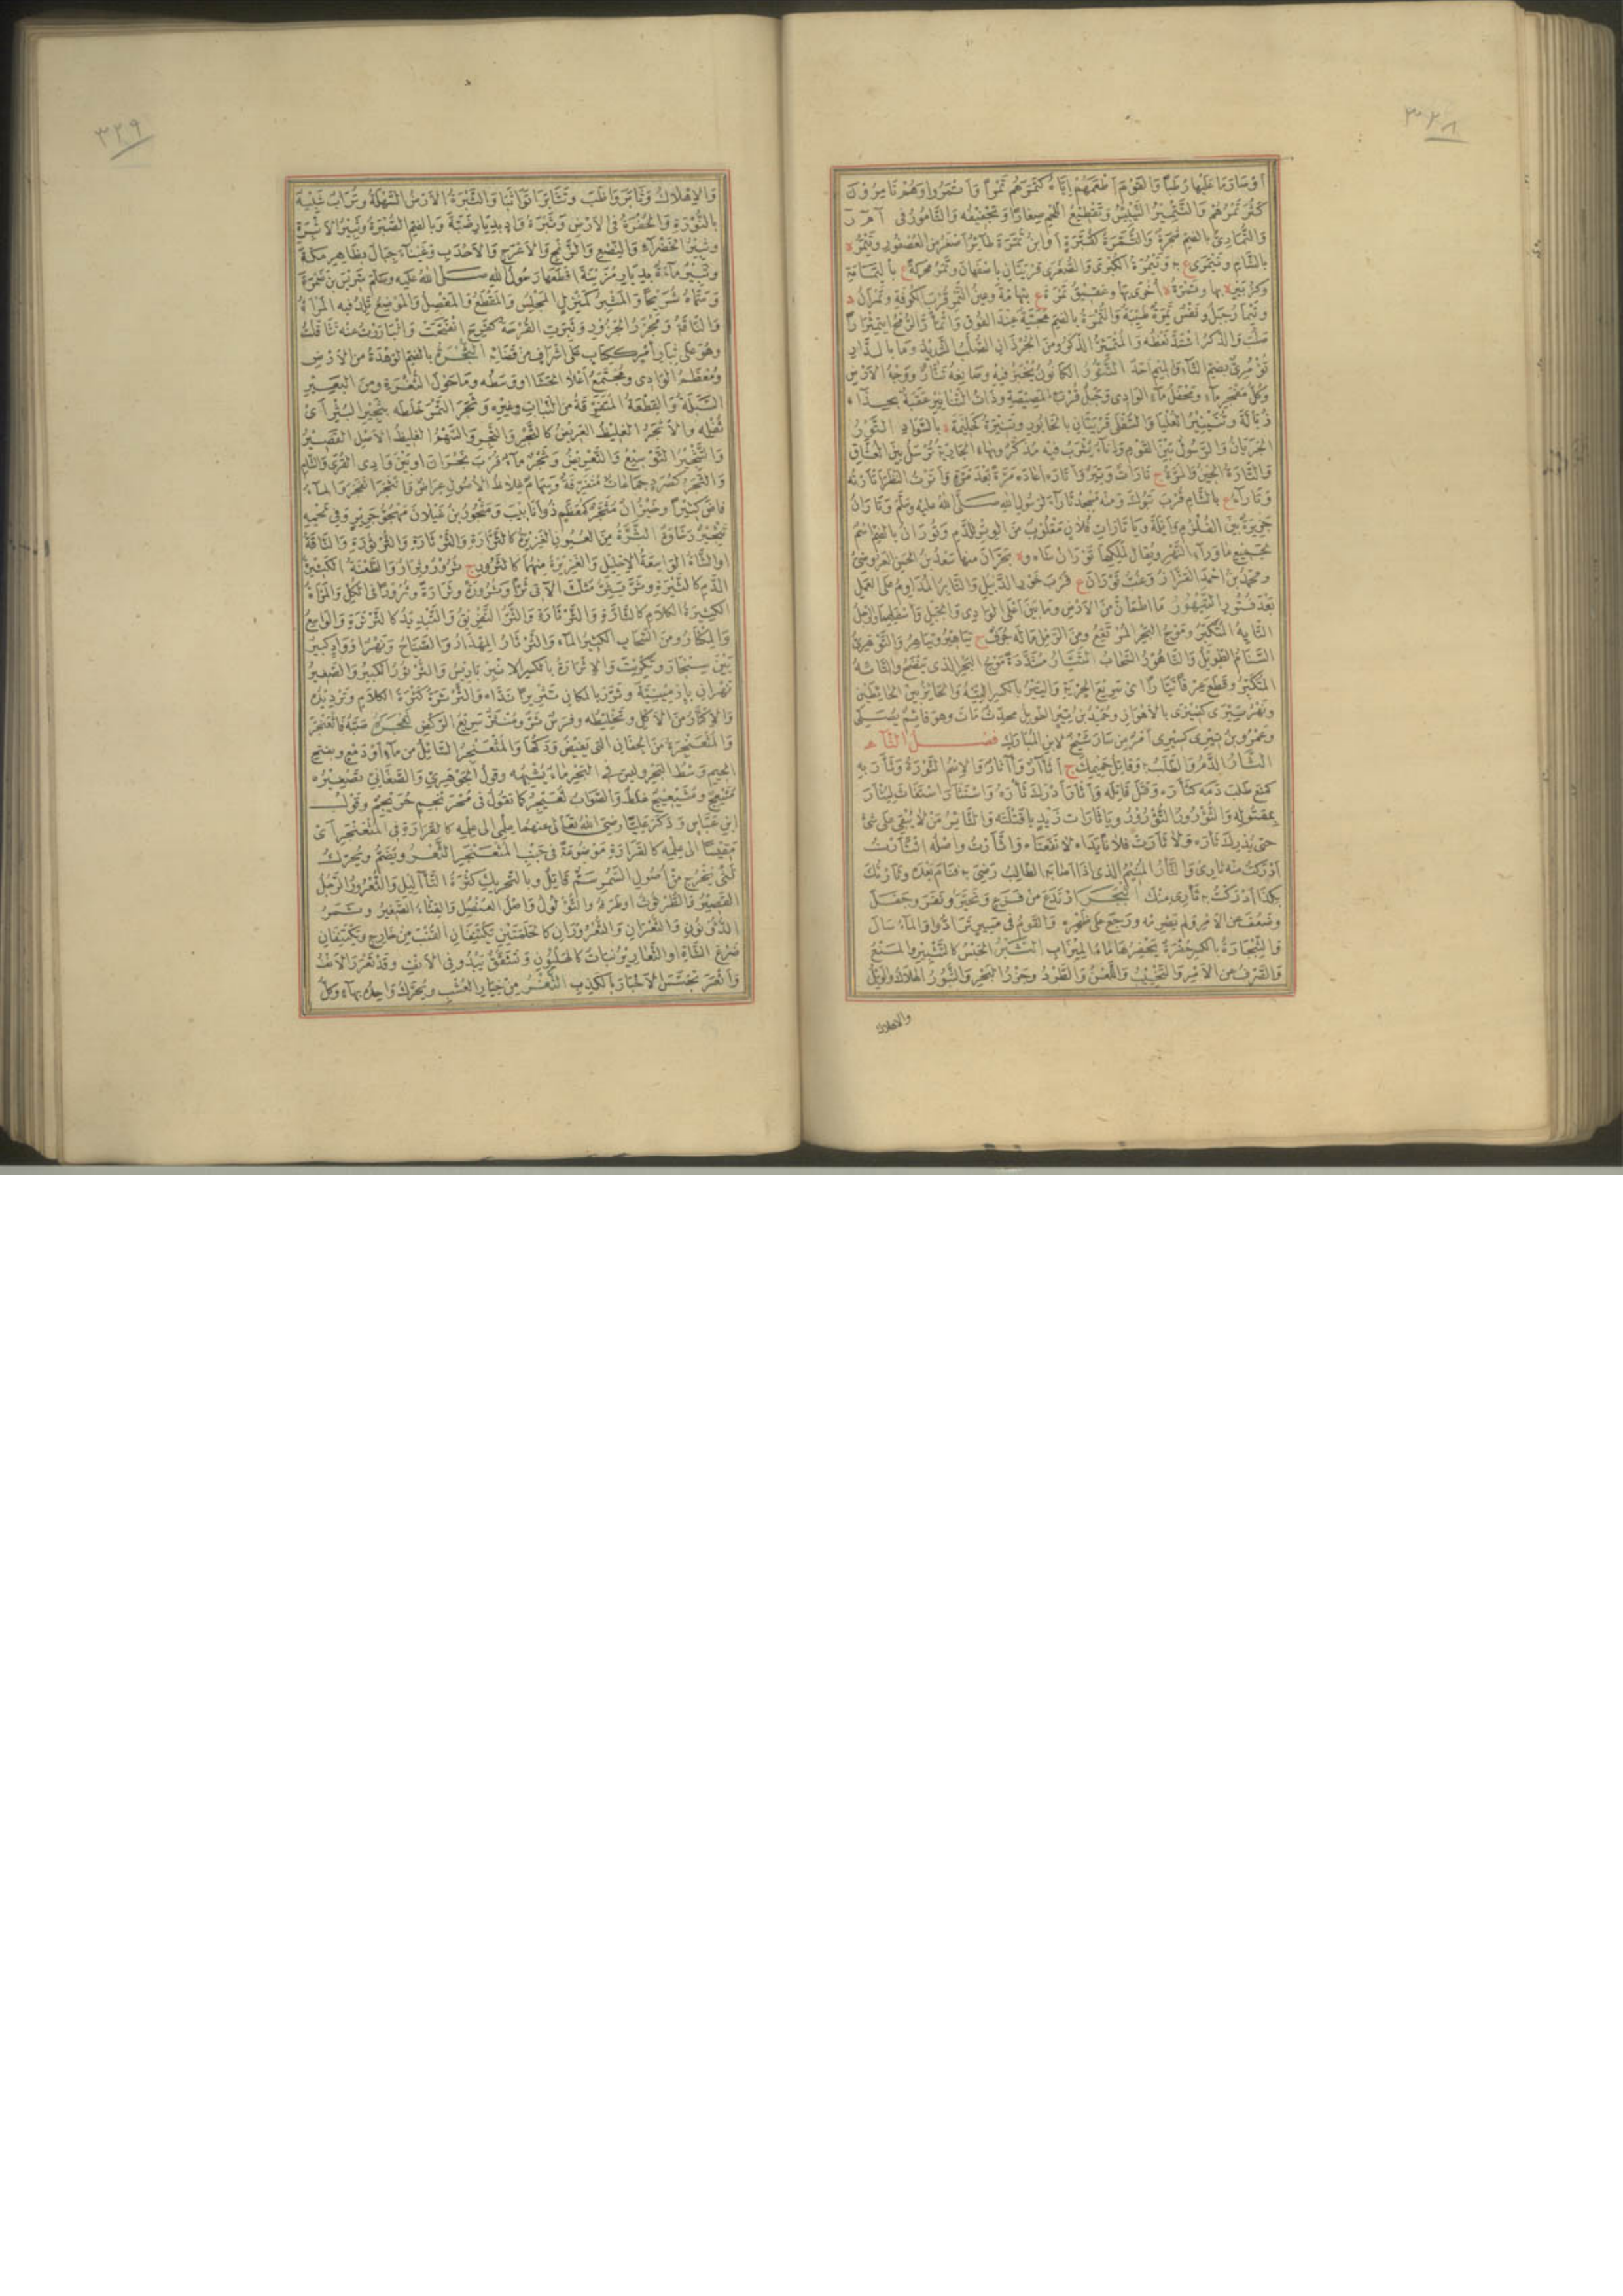 ٣٢٨
او شاؤما عليها رطبا والقوم اطعمهم اياه كتمرهم تمرا واتمروا وهم تامرون
كثر تمرهم والتتمير التيبيس وتقطيع اللحم صغارا وتجفيفه والتامور في ا م ر
والتمارى بالضم شجرة والتمرة كقبرة او ابن تمرة طائر اصغر من العصفور وتيمر ة
بالشام وتيمرى ع به وتيمرة الكبرى والصغرى قريتان باصفهان وتمر محركة ع باليمامة
وكزبير ة بها وتمرة ة اخرى بها وعقيق تمرة ع بتهامة وعين التمر قرب الكوفة وتمران د
وتيمار جبل ونفس تمرة طيبة والتمرة بالضم عند الفوق واتمأر الرمح اتمئرارا
صلب والذكر اشتد نعظه والمتمئر الذكر ومن الجرذان الصلب الشديد وما بالدار
تومرى بضم التاء والميم احد التنور الكانون يخبز فيه وصانعه تنار ووجه الارض
وكل مفجر ماء ومحفل ماء الوادي وجبل قرب المصيصة وذات التنانير عقبة بحذاء
زبالة وتنينير العليا والسفلى قريتان بالخابور وتنيرة كحليمة ة بالسواد التور
الجريان والرسول بين القوم واناء يشرب فيه مذكر وبهاء الجارية ترسل بين العشاق
والتارة الحين والمرة ج تارات وتير واتاره اعاده مرة بعد مرة واترت النظر اتارته
وتاراء ع بالشام قرب تبوك ومنه مسجد تاراء لرسول الله صلى الله عليه وسلم وتاران
جزيرة بين القلزم وايلة ويا تارات فلان مقلوب من الوتر للدم وتوران بالضم اسم
لجميع ما وراء النهر ويقال لملكها توران شاه وة بحران منها سعد بن الحسن العروضي
ومحمد بن احمد القزاز وغب توران ع قرب خور الديبل والتاير المداوم على العمل
بعد فتور التيهور ما اطمان من الارض وما بين اعلى الوادي والجبل واسفلهما والرجل
التايه المتكبر وموج البحر المرتفع ومن الرمل ما له جرف ج تياهير وتياهر والتوهري
السنام الطويل والتاهور السحاب التيار مشددة موج البحر الذي ينضح والتائه
المتكبر وقطع عرقا تيارا اي سريع الجرية والتير بالكسر التيه والحايز بين الحايطين
ونهر تيرى كضيزى بالاهواز وحميد بن تير الطويل محدث مات وهو قائم يصلي
وعمرو بن تيرى كسيرى شيخ لابن المبارك فصل الثاء
الثأر الدم والطلب به وقاتل حميمك ج اثآر وآثار والاسم الثؤرة وثأر به
كمنع طلب دمه كثأره وقتل قاتله واثأر ادرك ثأره واستثأر استغاث ليثأر
بمقتوله والثؤرور التؤرور ويا ثارات زيد يا قتلته والثائر من لا يبقى على شيء
حتى يدرك ثأره ولا ثأرت فلانا يداه لا نفعتاه واثأرت واصله اثتأرت
ادركت منه ثاري والثأر المنيم الذي اذا اصابه الطالب رضي به فنام بعده وثأرتك
بكذا ادركت به ثأري منك اثبجر ارتدع من فزع وتحير ونفر وجفل
وضعف عن الامر فلم يصرمه ورجع على ظهره والقوم في مسير ترادوا والماء سال
والثبجارة بالكسر حفرة يحفرها ماء الميزاب الثبر الحبس كالتثبير والمنع
والصرف عن الامر والتخييب واللعن والطرد وجزر البحر والثبور الهلاك والويل
والاهلاك
٣٢٩
والاهلاك وثابر واظب وتثابرا تواثبا والثبرة الارض السهلة وتراب شبيه
بالنورة والحفرة في الارض وثبرة واد بديار ضبة وبالضم الصبرة وثبير الاثبرة
وثبير الخضراء والنصع والزنج والاعرج والاحدب وغيناء جبال بظاهر مكة
وثبير ماءة بديار مزينة اقطعها رسول الله صلى الله عليه وسلم شريس بن ضمرة
وسماه شريحا والمثبر كمنزل المجلس والمقطع والمفصل والموضع تلد فيه المراة
والناقة ومجزر الجزور وثبرت القرحة كفرح انفتحت واثبارّرت عنه تثاقلت
وهو على ثبار امر ككتاب على اشراف من قضائه الثجرة بالضم الوهدة من الارض
ومعظم الوادي ومجتمع اعلى الحشا او وسطه وما حول الثغرة ومن البعير
السبلة والقطعة المتفرقة من النبات وغيره وثجر التمر خلطه بثجير البسر اي
ثفله والاثجر الغليظ العريض كالثجر والثجر والسهم الغليظ الاصل القصير
والتثجير التوسيع والتعريض وثجر ماء قرب نجران او بين وادي القرى والشام
والثجر كصرد جماعات متفرقة وسهام غلاظ الاصول عراض وانثجر انفجر والماء
فاض كثيرا وخيزران مثجر كمعظم ذو انابيب ومثجور بن غيلان مهجو جرير وفي لحمه
تثجير رخاوة الثرة من العيون الغزيرة كالثرارة والثرثارة والثرثورة والناقة
او الشاة الواسعة الاحليل والغزيرة منهما كالثرور ج ثرور وثرار والطعنة الكثيرة
الدم كالثرة وثر يثر مثلثة الآتي ثرا وثرورة وثرارة وثرورا في الكل والمراة
الكثيرة الكلام كالثارة والثرثارة والثر التفريق والتبديد كالثرثرة والواسع
والمكثار ومن السحاب الكثير الماء والثرثار المهذار والصياح ونهر او واد كبير
بين سنجار وتكريت والاثرارة بالكسر الانبرباريس والثرثور الكبير والصغير
نهران بارمينية وثرر بالمكان تثريرا نداه والثرثرة كثرة الكلام وترديده
والاكثار من الاكل وتخليطه وفرس ثر ومثثر سريع الركض ثعجره صبه فاثعنجر
والمثعنجرة من الجفان التي يفيض ودكها والمثعنجر السائل من ماء او دمع وبفتح
الجيم وسط البحر وليس في البحر ماء يشبهه وقول الجوهري والصغاني تصغيره
مثيعج ومثيعيج غلط والصواب ثعيجر كما تقول في محرنجم حريجم وقول
ابن عباس وذكر عليا رضي الله تعالى عنهما علمي الى علمه كالقرارة في المثعنجر اي
مقيسا الى علمه كالقرارة موضوعة في جنب المثعنجر الثعر ويضم ويحرك
لثى يخرج من اصول السمر سم قاتل وبالتحريك كثرة الثآليل والثعرور الرجل
القصير والطرثوث او طرفه والثؤلول واصل العنصل والقثاء الصغير وثمر
الذؤنون والثعران والثعروران كالحلمتين يكتنفان القنب من خارج ويكتنفان
ضرع الشاة والثعارير نبات كالهليون وتشقق يبدو في الانف وقد ثعر الانف
واثعر تجسس الاخبار بالكذب الثغر من خيار العشب ويحرك واحده بهاء وكل